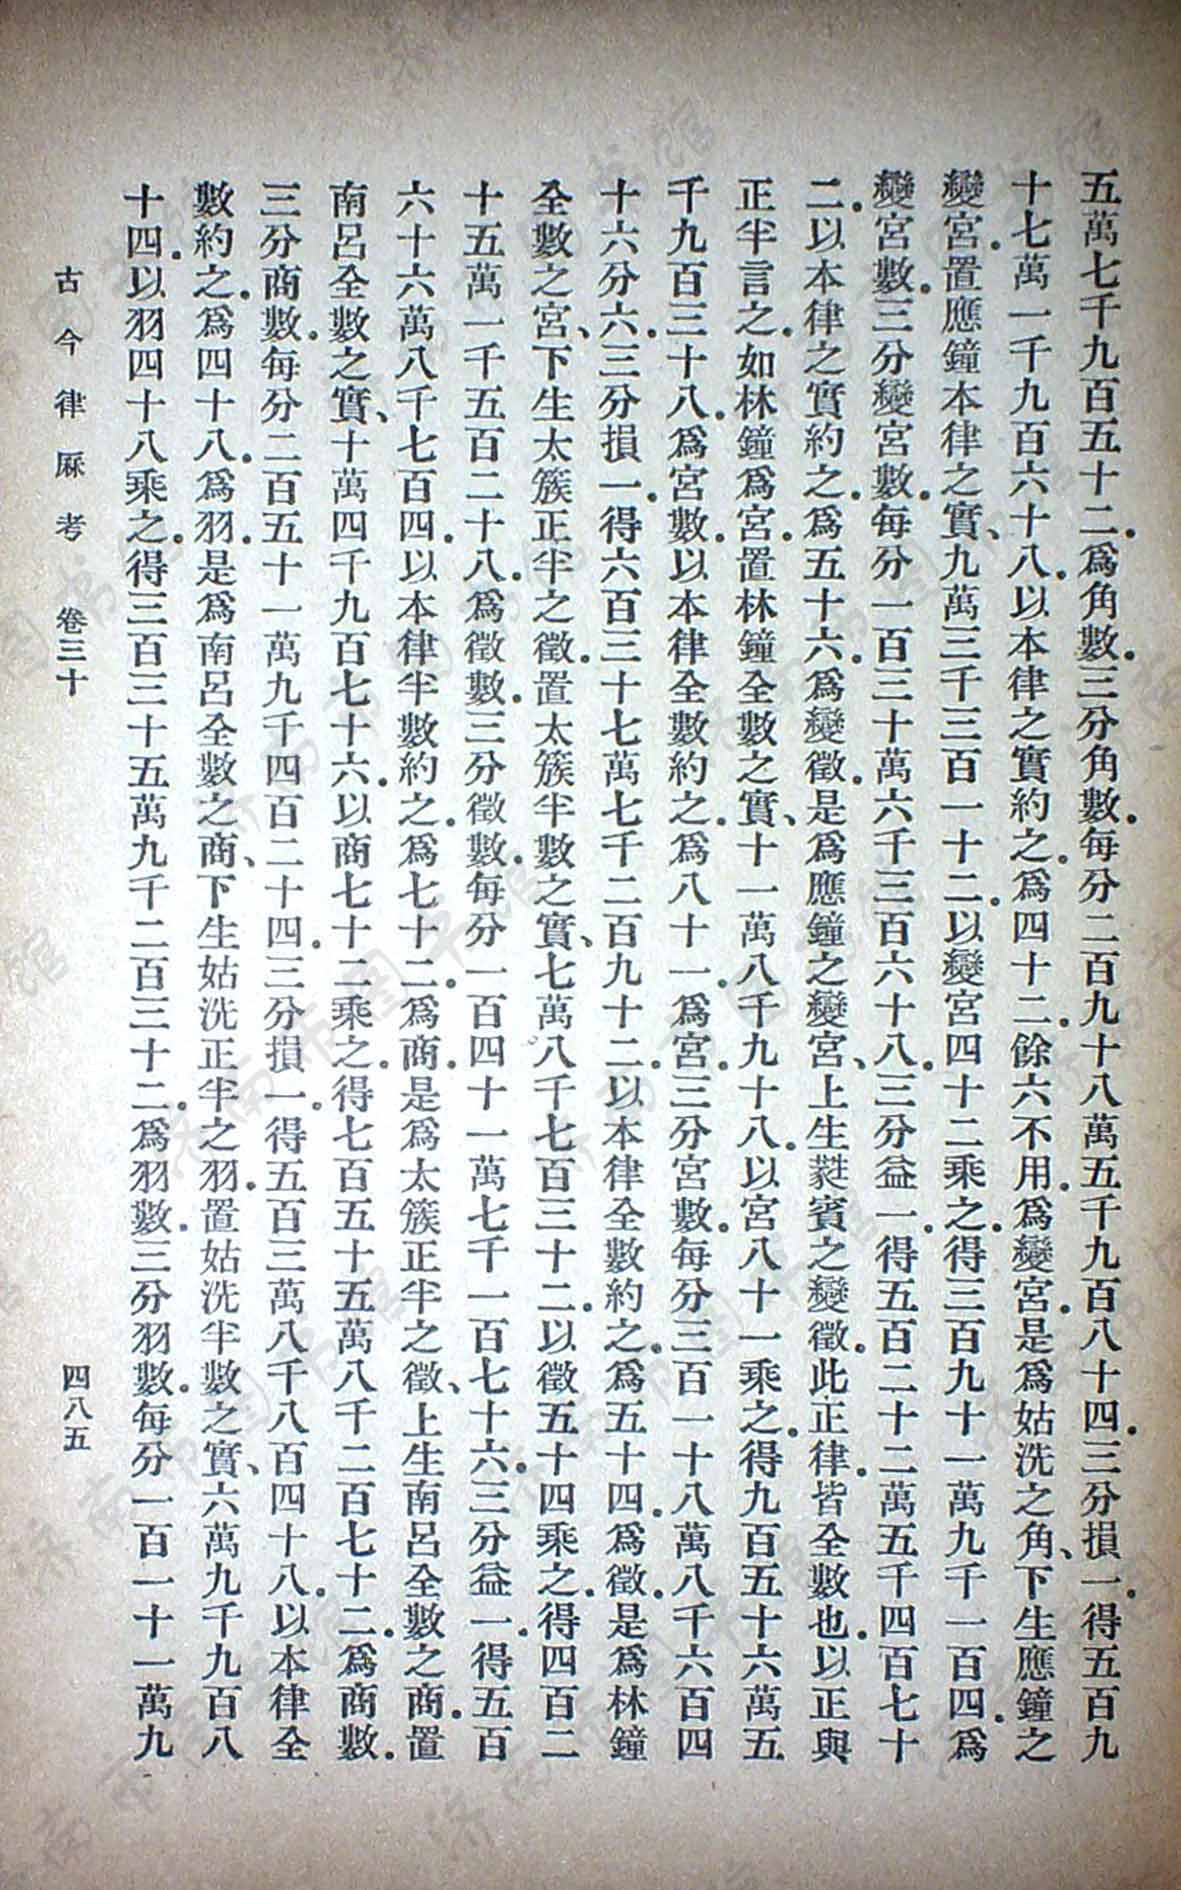 五萬七千九百五十二。爲角數。三分角數。每分二百九十八萬五千九百八十四。三分損一。得五百九
十七萬一千九百六十八。以本律之實約之。爲四十二。餘六不用。爲變宮。是爲姑洗之角、下生應鐘之
變宮。置應鐘本律之實、九萬三千三百一十二。以變宮四十二乘之。得三百九十一萬九千一百四。爲
變宮數。三分變宮數。每分一百三十萬六千三百六十八。三分益一。得五百二十二萬五千四百七十
二。以本律之實約之。爲五十六。爲變徵。是爲應鐘之變宮、上生蕤賓之變徵。此正律。皆全數也。以正與
正半言之。如林鐘爲宮。置林鐘全數之實、十一萬八千九十八。以宮八十一乘之。得九百五十六萬五
千九百三十八。爲宮數。以本律全數約之。爲八十一。爲宮。三分宮數。每分三百一十八萬八千六百四
十六分六。三分損一。得六百三十七萬七千二百九十二。以本律全數約之。爲五十四。爲徵。是爲林鐘
全數之宮、下生太簇正半之徵。置太簇半數之實、七萬八千七百三十二。以徵五十四乘之。得四百二
十五萬一千五百二十八。爲徵數。三分徵數。每分一百四十一萬七千一百七十六。三分益一。得五百
六十六萬八千七百四。以本律半數約之。爲七十二。爲商。是爲太簇正半之徵、上生南呂全數之商。置
南呂全數之實、十萬四千九百七十六。以商七十二乘之。得七百五十五萬八千二百七十二。爲商數。
三分商數。每分二百五十一萬九千四百二十四。三分損一。得五百三萬八千八百四十八。以本律全
數約之。爲四十八。爲羽。是爲南呂全數之商、下生姑洗正半之羽。置姑洗半數之實、六萬九千九百八
十四。以羽四十八乘之。得三百三十五萬九千二百三十二。爲羽數。三分羽數。每分一百一十一萬九
古今律厤考 卷三十 四八五